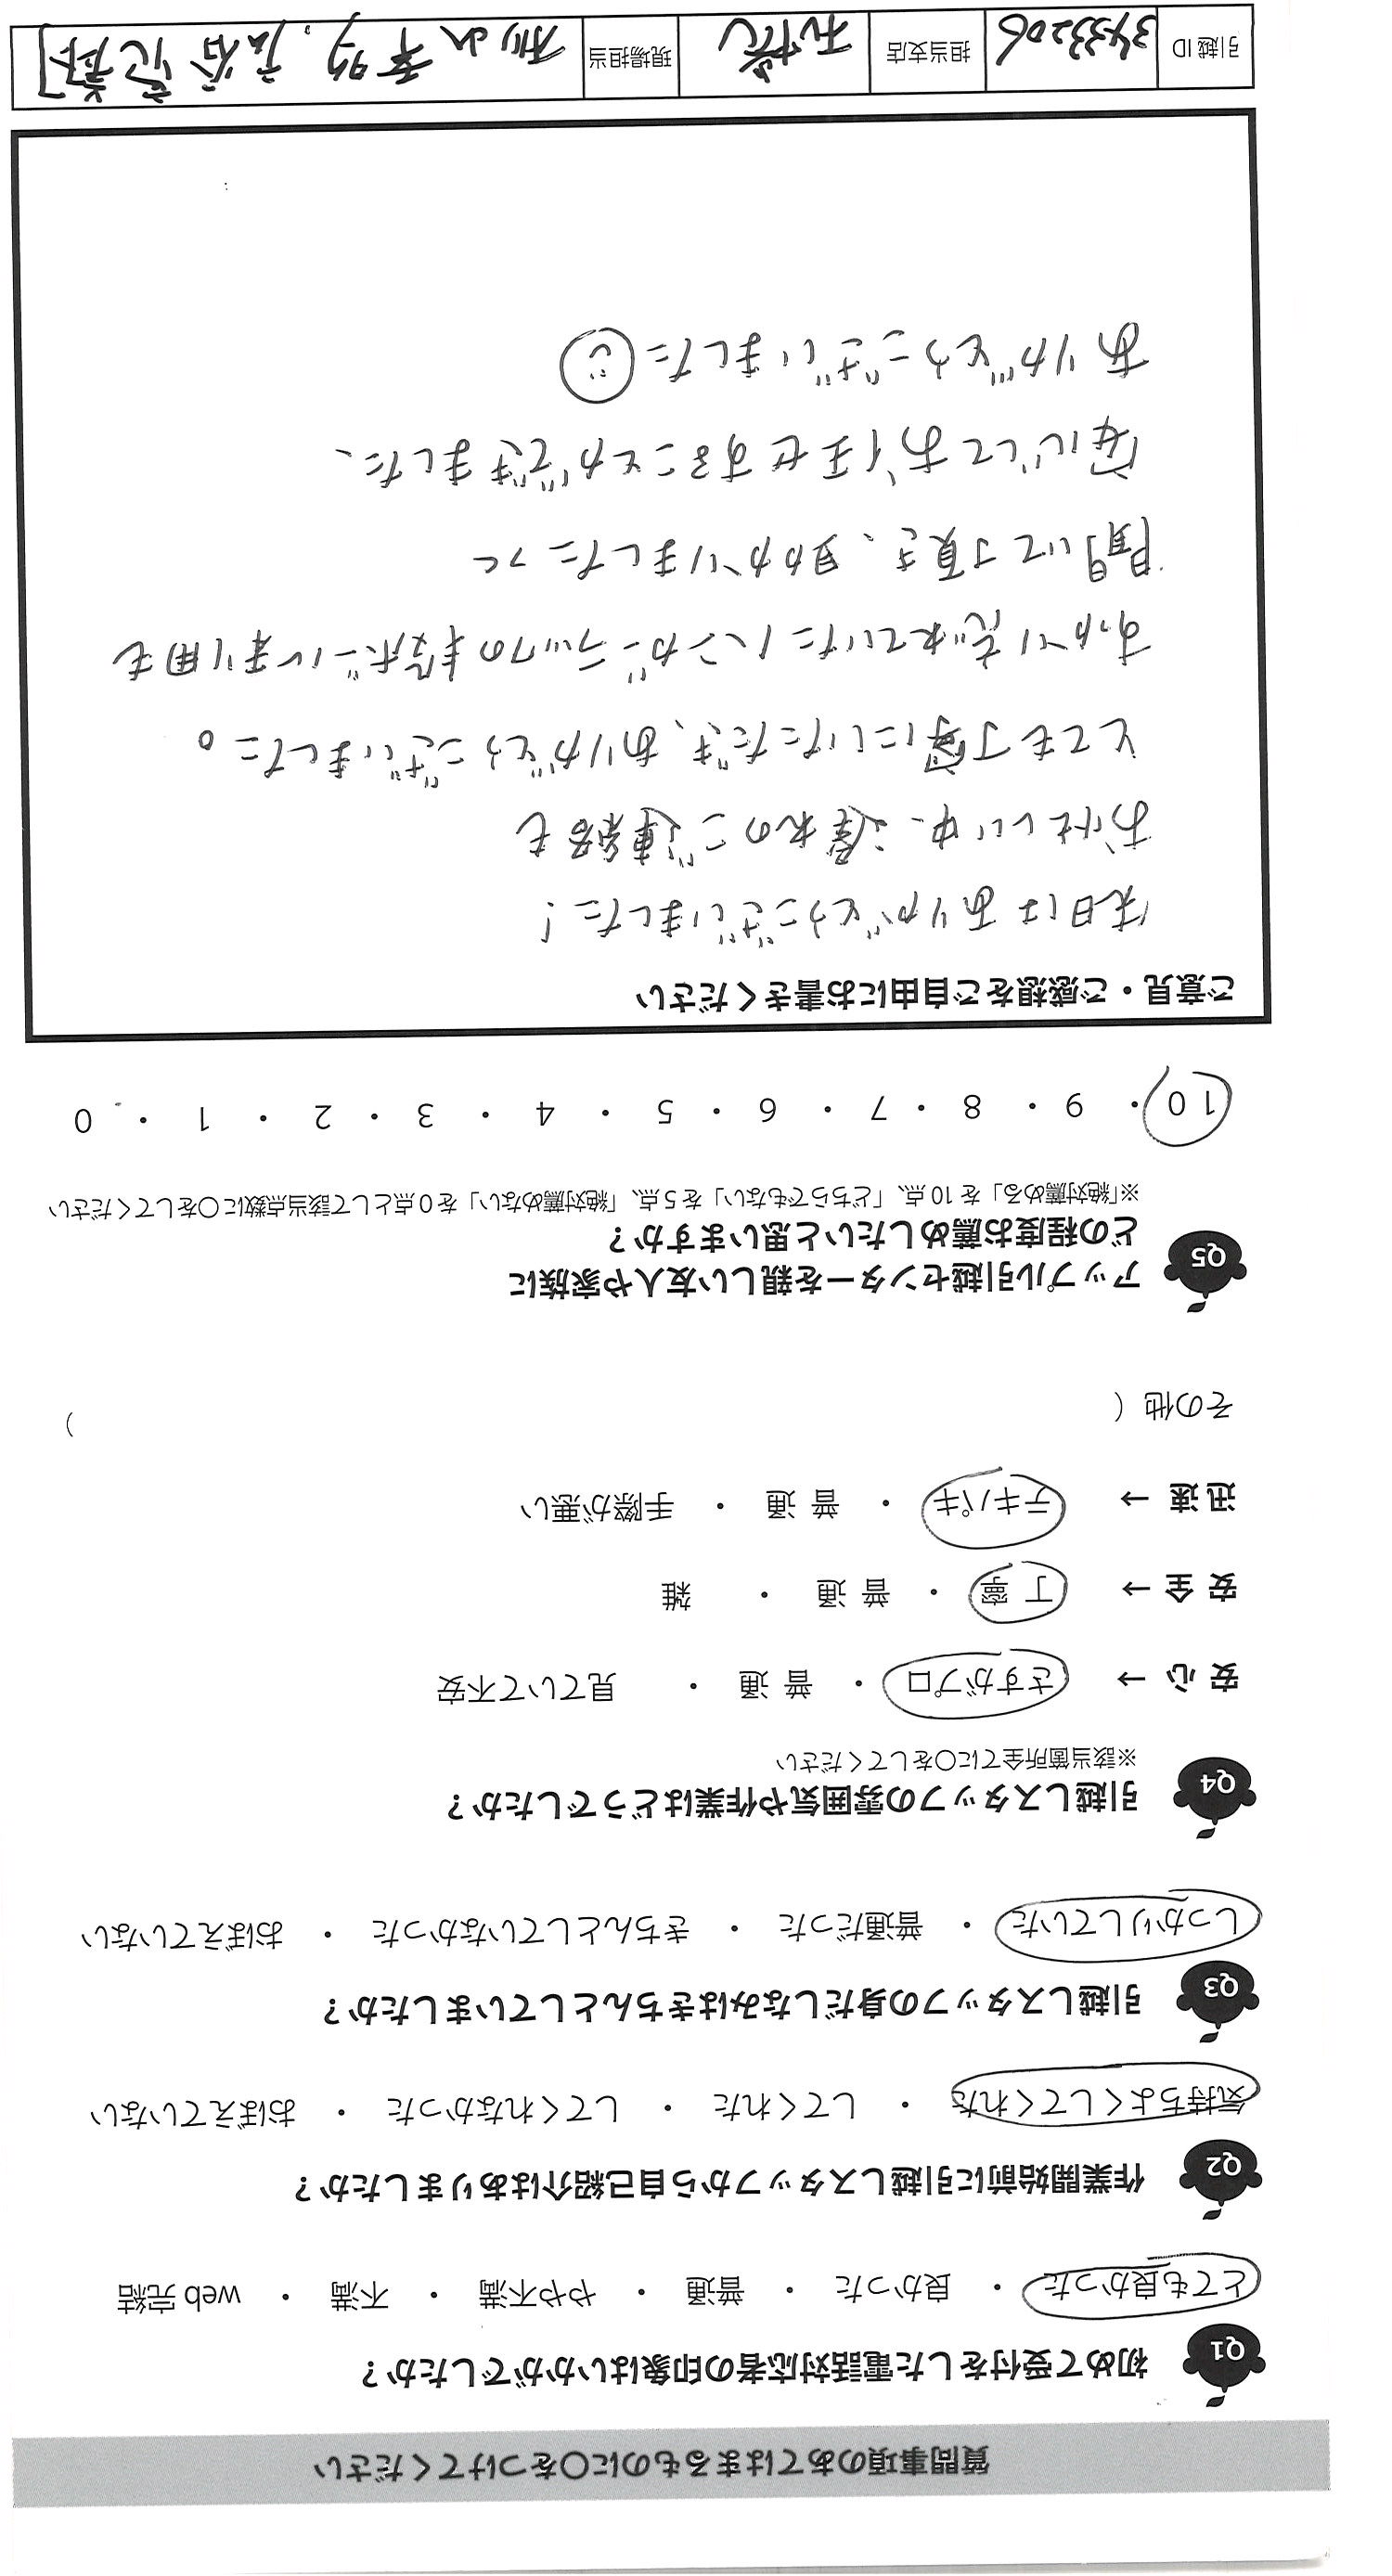 質問事項のあてはまるものに○をつけてください
Q1 初めて受付をした電話対応者の印象はいかがでしたか？
とても良かった ・ 良かった ・ 普通 ・ やや不満 ・ 不満 ・ web 完結
Q2 作業開始前に引越しスタッフから自己紹介はありましたか？
気持ちよくしてくれた ・ してくれた ・ してくれなかった ・ おぼえていない
Q3 引越しスタッフの身だしなみはきちんとしていましたか？
しっかりしていた ・ 普通だった ・ きちんとしていなかった ・ おぼえていない
Q4 引越しスタッフの雰囲気や作業はどうでしたか？
※該当箇所全てに○をしてください
安心 → さすがプロ ・ 普通 ・ 見ていて不安
安全 → 丁寧 ・ 普通 ・ 雑
迅速 → テキパキ ・ 普通 ・ 手際が悪い
その他 （ ）
Q5 アップル引越センターを親しい友人や家族に
どの程度お薦めしたいと思いますか？
※「絶対薦める」を 10 点、「どちらでもない」を 5 点、「絶対薦めない」を 0 点として該当点数に○をしてください
10 ・ 9 ・ 8 ・ 7 ・ 6 ・ 5 ・ 4 ・ 3 ・ 2 ・ 1 ・ 0
ご意見・ご感想をご自由にお書きください
先日はありがとうございました！
お忙しい中、遅れのご連絡も
とても丁寧にいただき、ありがとうございました。
すっかり忘れていたハンガーラックの段ボール
聞いて頂き、助かりましたし
安心してお任せすることができました、
ありがとうございました
引越 ID 3433206 担当支店 現場担当